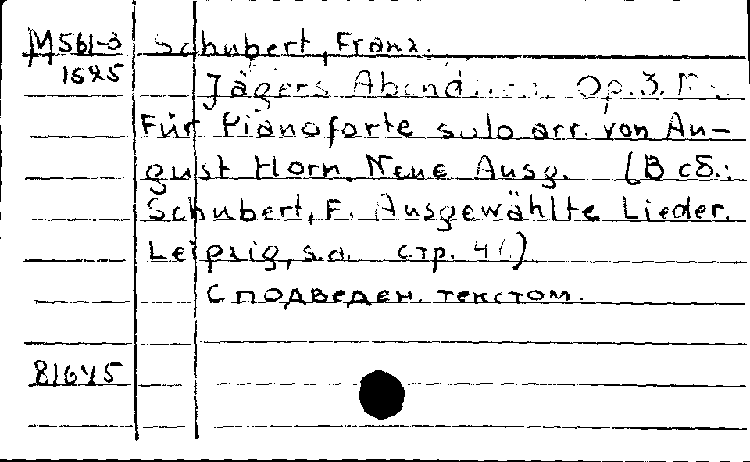 M561-3 Schubert, Franz.
1645 Jägers Op. 3.
Für Pianoforte solo arr. von Au-
gust Horn. Neue Ausg. (В сб.:
Schubert, F. Ausgewählte Lieder.
Leipzig, s.a. стр.
С подведен. текстом.
81645